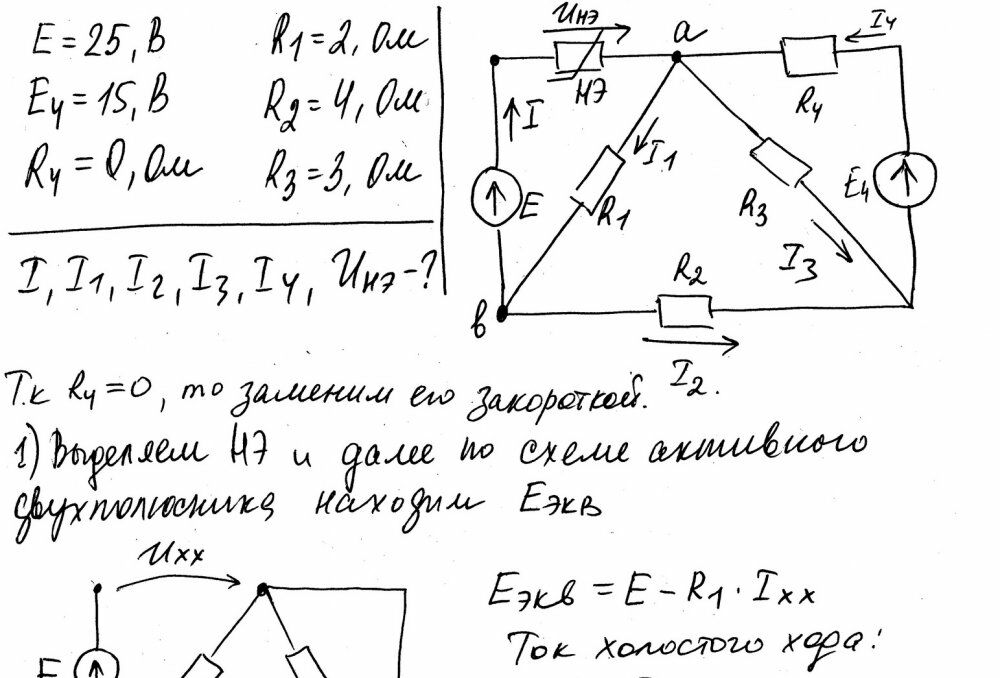 E = 25, В R1 = 2, Ом
E4 = 15, В R2 = 4, Ом
R4 = 0, Ом R3 = 3, Ом
I, I1, I2, I3, I4, Uнэ - ?
Uнэ
a
I4
НЭ
R4
I
I1
E
R1
R3
E4
I3
R2
в
I2
Т.к R4 = 0, то заменим его закороткой.
1) Выделяем НЭ и далее по схеме активного
двухполюсника находим Eэкв
Uхх
Eэкв = E - R1 · Iхх
Ток холостого хода:
E